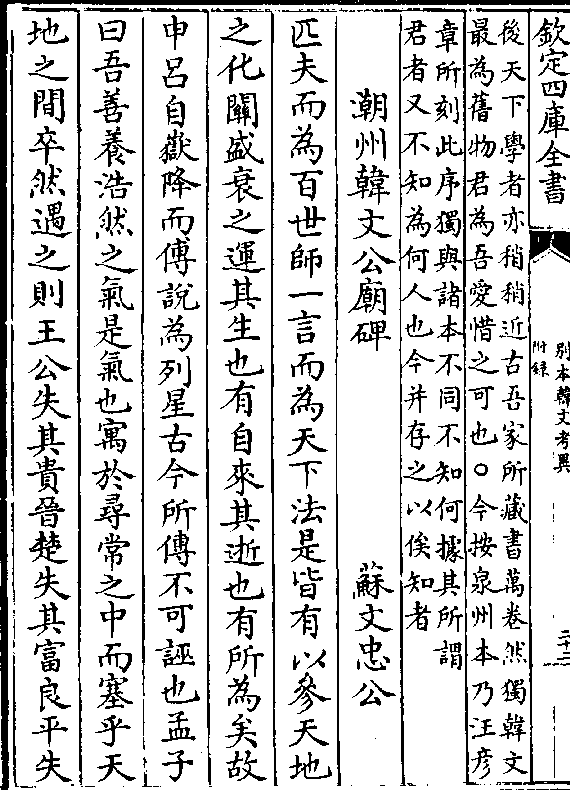 欽定四庫全書
別本韓文考異
附錄
二十三
後天下學者亦稍稍近古吾家所藏書萬卷然獨韓文
最為舊物君為吾愛惜之可也○今按泉州本乃汪彦
章所刻此序獨與諸本不同不知何據其所謂
君者又不知為何人也今并存之以俟知者
潮州韓文公廟碑 蘇文忠公
匹夫而為百世師一言而為天下法是皆有以參天地
之化關盛衰之運其生也有自來其逝也有所為矣故
申呂自嶽降而傅說為列星古今所傳不可誣也孟子
曰吾善養浩然之氣是氣也寓於尋常之中而塞乎天
地之間卒然遇之則王公失其貴晉楚失其富良平失